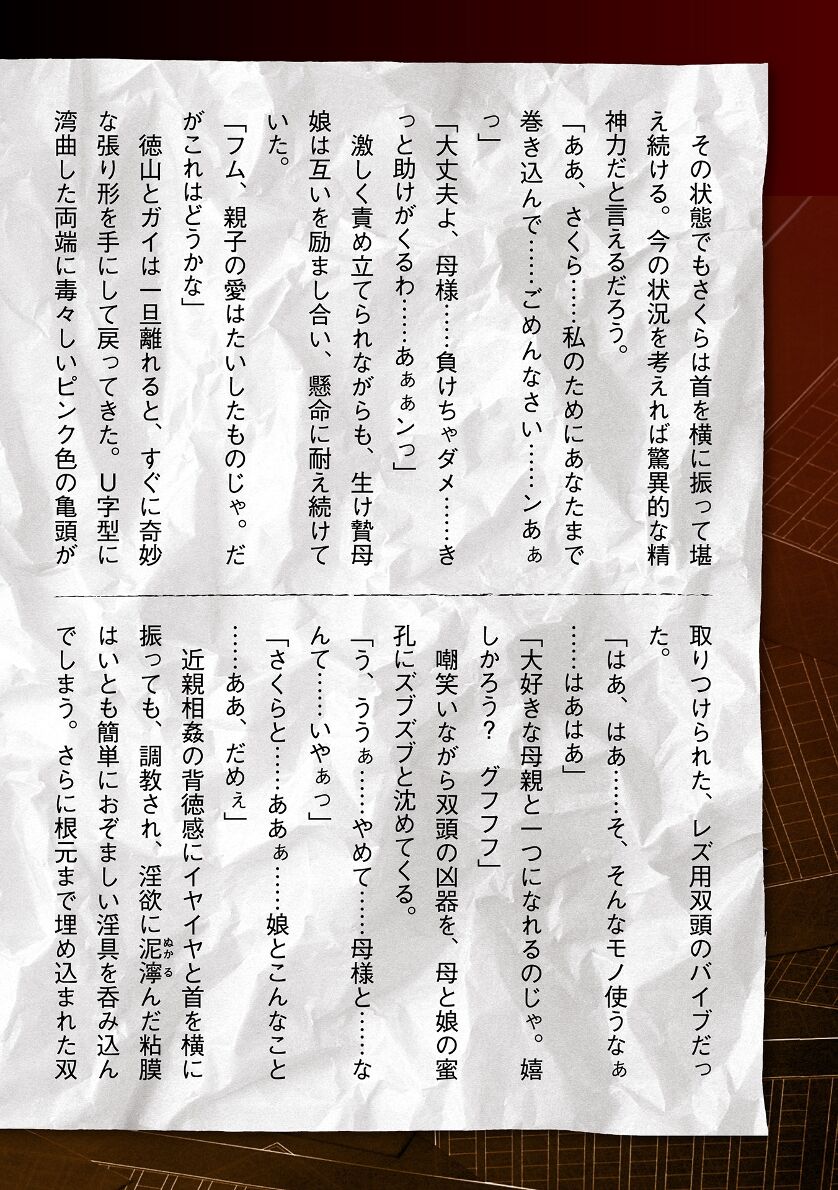 その状態でもさくらは首を横に振って堪
え続ける。今の状況を考えれば驚異的な精
神力だと言えるだろう。
「ああ、さくら……私のためにあなたまで
巻き込んで……ごめんなさい……ンあぁ
っ」
「大丈夫よ、母様……負けちゃダメ……き
っと助けがくるわ……あぁぁンっ」
激しく責め立てられながらも、生け贄母
娘は互いを励まし合い、懸命に耐え続けて
いた。
「フム、親子の愛はたいしたものじゃ。だ
がこれはどうかな」
徳山とガイは一旦離れると、すぐに奇妙
な張り形を手にして戻ってきた。U字型に
湾曲した両端に毒々しいピンク色の亀頭が
取りつけられた、レズ用双頭のバイブだっ
た。
「はあ、はあ……そ、そんなモノ使うなぁ
……はあはあ」
「大好きな母親と一つになれるのじゃ。嬉
しかろう？　グフフフ」
嘲笑いながら双頭の凶器を、母と娘の蜜
孔にズブズブと沈めてくる。
「う、ううぁ……やめて……母様と……な
んて……いやぁっ」
「さくらと……ああぁ……娘とこんなこと
……ああ、だめぇ」
近親相姦の背徳感にイヤイヤと首を横に
振っても、調教され、淫欲に泥濘んだ粘膜
ぬかる
はいとも簡単におぞましい淫具を呑み込ん
でしまう。さらに根元まで埋め込まれた双